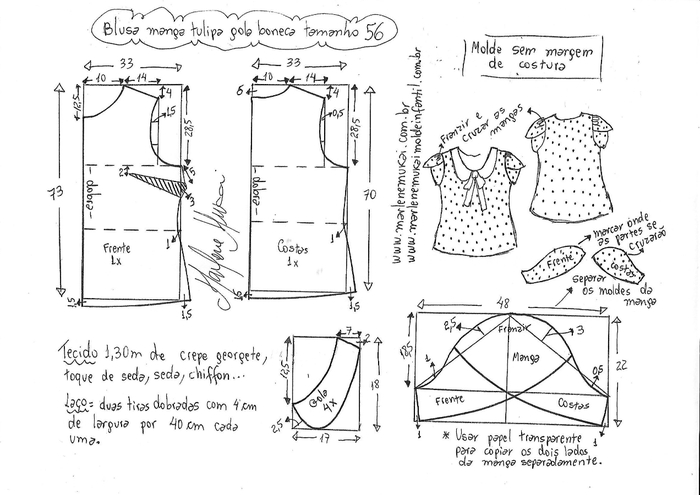 Blusa manga tulipa gola boneca tamanho 56
Molde sem margem
de costura
33
10
14
12,5
4
1,5
28,5
73
dobra
2
5
3
1
Frente
1x
1,5
1,5
Marlene Mukai
33
10
14
6
4
0,5
28,5
dobra
70
1
Costas
1x
1,5
1,5
www.marlenemukai.com.br
www.marlenemukaimoldeinfantil.com.br
Franzir e
cruzar as
mangas
marcar onde
as partes se
cruzarão
Frente
Costas
separar
os moldes da
manga
48
2,5
Franzir
3
18,5
Manga
22
1
0,5
Frente
Costas
1
1
* Usar papel transparente
para copiar os dois lados
da manga separadamente.
7
2
12,5
Gola
4x
18
2,5
17
Tecido 1,30m de crepe georgete,
toque de seda, seda, chiffon...
Laço = duas tiras dobradas com 4 cm
de largura por 40 cm cada
uma.